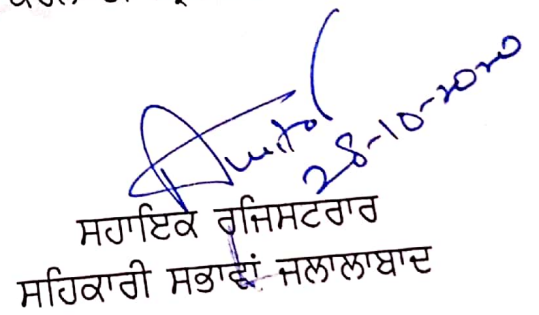 28-10-2020
ਸਹਾਇਕ ਰਜਿਸਟਰਾਰ
ਸਹਿਕਾਰੀ ਸਭਾਵਾਂ ਜਲਾਲਾਬਾਦ